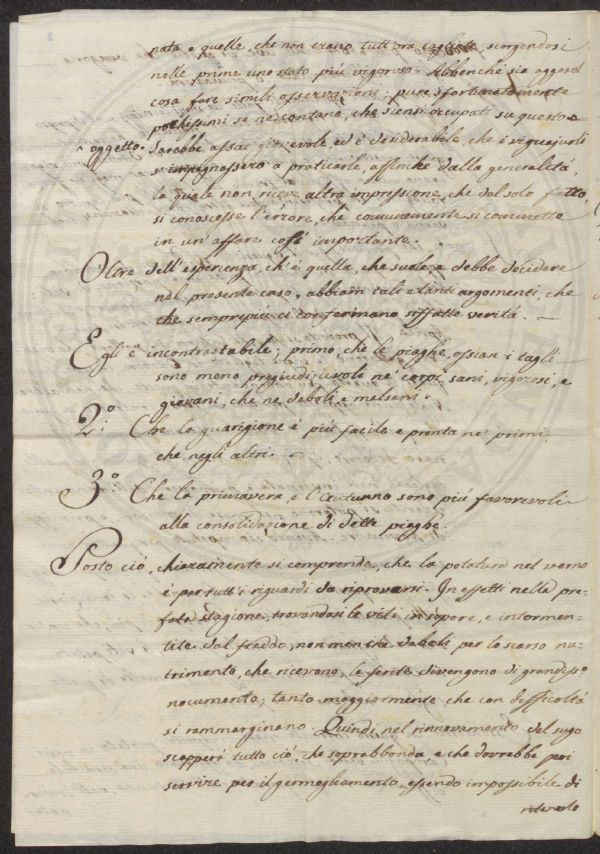 nata, e quelle, che non erano tutt'ora tagliate, scorgendosi
nelle prime uno stato più vigoroso. Abbenchè sia aggevol
cosa fare simili osservazioni; pure sfortunatamente
pochissimi se ne contano, che siensi occupati su questo
oggetto. Sarebbe assai giovevole, ed è desiderabile, che i vignajuoli
s'impegnassero a praticarle, affinchè dalla generalità,
la quale non riceve altra impressione, che dal solo fatto,
si conoscesse l'errore, che comunemente si commette
in un'affare così importante.
Oltre dell'esperienza, ch'è quella, che suole, e debbe decidere
nel presente caso, abbiam tali e tanti argomenti, che
che semprepiù ci confermano siffatte verità.
Egli è incontrastabile; primo, che le piaghe, ossian i tagli
sono meno pregiudicievoli ne' corpi sani, vigorosi, e
giovani, che ne' deboli, e malsani.
2.° Che la guarigione è più facile e pronta ne' primi,
che negli altri.
3.° Che la primavera, e l'Autunno sono più favorevoli
alla consolidazione di dette piaghe.
Posto ciò, chiaramente si comprende, che la potatura nel verno
è per tutt'i riguardi da riprovarsi. In effetti nella pre-
fata stagione, trovandosi le viti in sopore, e intormen-
tite dal freddo, non men che deboli per lo scarso nu-
trimento, che ricevono, le ferite divengono di grandiss.°
nocumento; tanto maggiormente che con difficoltà
si rammarginano. Quindi nel rinnovamento del sugo
scapperà tutto ciò, che soprabbonda, e che dovrebbe poi
servire per il germogliamento, essendo impossibile di